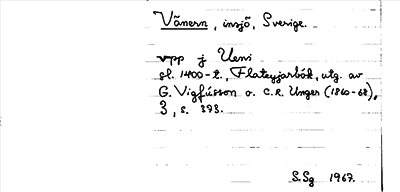 Vänern, insjö, Sverige.
upp j Ueni
sl. 1400-t., Flateyjarbók, utg. av
G. Vigfússon o. C.R. Unger (1860-68),
3, s. 373.
S.Sg 1967.